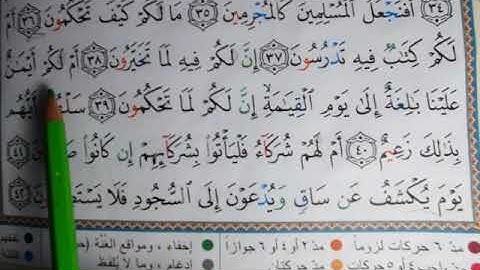 ٣٤ أَفَنَجْعَلُ ٱلْمُسْلِمِينَ كَٱلْمُجْرِمِينَ ٣٥ مَا لَكُمْ كَيْفَ تَحْكُمُونَ ٣٦ أَمْ
لَكُمْ كِتَٰبٌ فِيهِ تَدْرُسُونَ ٣٧ إِنَّ لَكُمْ فِيهِ لَمَا تَخَيَّرُونَ ٣٨ أَمْ لَكُمْ أَيْمَٰنٌ
عَلَيْنَا بَٰلِغَةٌ إِلَىٰ يَوْمِ ٱلْقِيَٰمَةِ إِنَّ لَكُمْ لَمَا تَحْكُمُونَ ٣٩ سَلْهُمْ أَيُّهُم
بِذَٰلِكَ زَعِيمٌ ٤٠ أَمْ لَهُمْ شُرَكَآءُ فَلْيَأْتُوا۟ بِشُرَكَآئِهِمْ إِن كَانُوا۟ ٤١
يَوْمَ يُكْشَفُ عَن سَاقٍ وَيُدْعَوْنَ إِلَى ٱلسُّجُودِ فَلَا ٤٢
مدّ ٦ حركات لزوماً مدّ ٢ أو ٤ أو ٦ جوازاً إخفاء، ومواقع الغنّة
حركات مدّ حركتان إدغام، وما لا يُلفظ